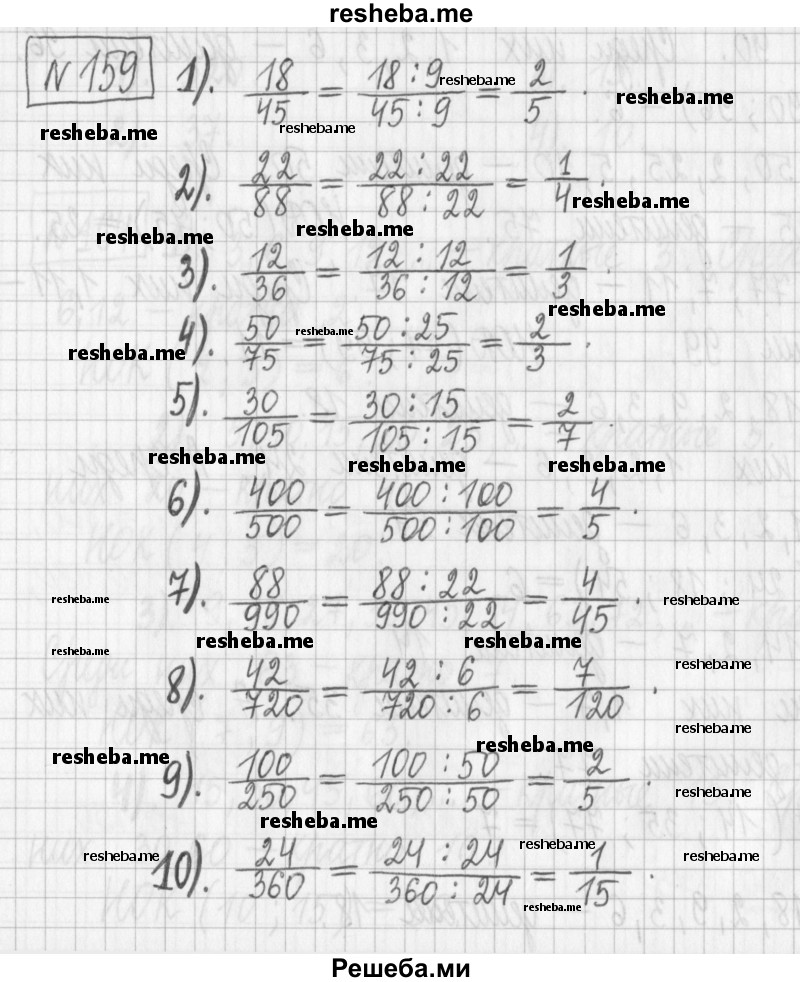 resheba.me
N 159 1). 18/45 = 18 : 9/45 : 9 = 2/5 .
resheba.me
resheba.me
resheba.me
resheba.me
2). 22/88 = 22 : 22/88 : 22 = 1/4 .
resheba.me
resheba.me
resheba.me
3). 12/36 = 12 : 12/36 : 12 = 1/3 .
resheba.me
4). 50/75 = 50 : 25/75 : 25 = 2/3 .
resheba.me
resheba.me
5). 30/105 = 30 : 15/105 : 15 = 2/7 .
resheba.me
resheba.me
resheba.me
6). 400/500 = 400 : 100/500 : 100 = 4/5 .
7). 88/990 = 88 : 22/990 : 22 = 4/45 .
resheba.me
resheba.me
resheba.me
resheba.me
resheba.me
resheba.me
8). 42/720 = 42 : 6/720 : 6 = 7/120 .
resheba.me
resheba.me
resheba.me
9). 100/250 = 100 : 50/250 : 50 = 2/5 .
resheba.me
resheba.me
resheba.me
resheba.me
resheba.me
10). 24/360 = 24 : 24/360 : 24 = 1/15 .
resheba.me
Решеба.ми